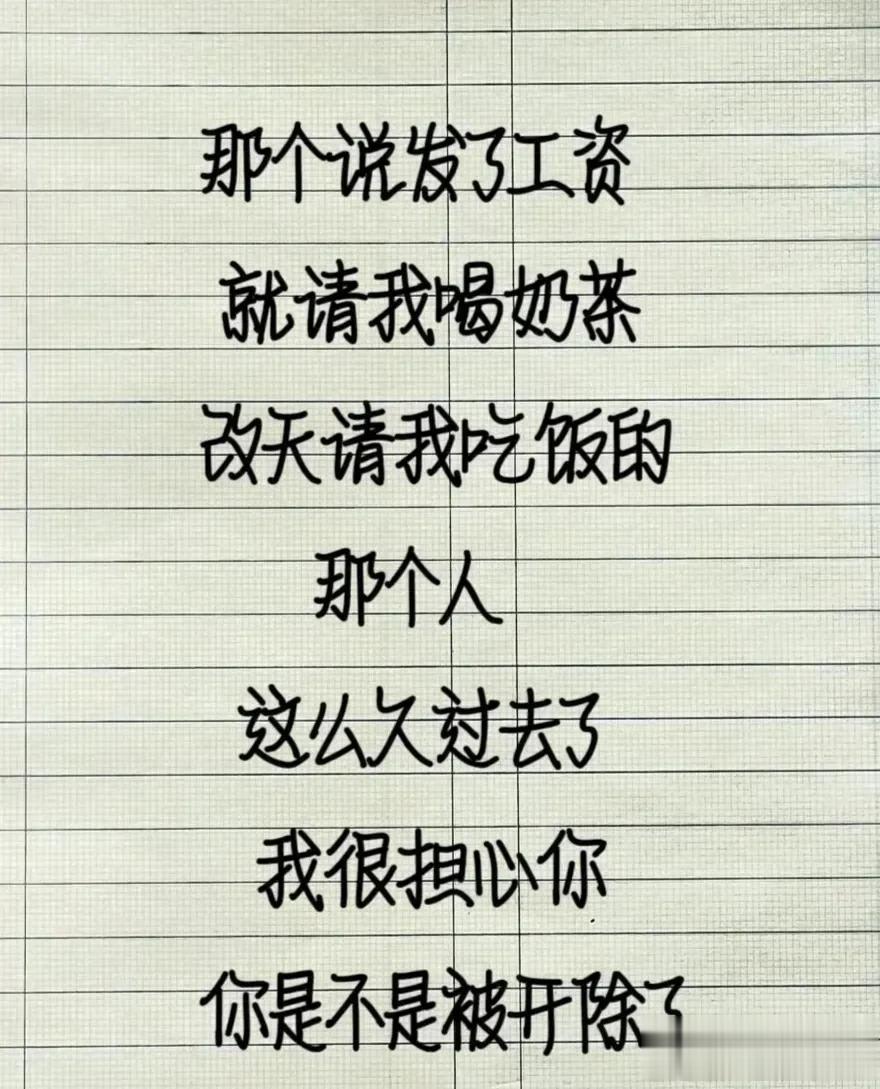 那个说发了工资
就请我喝奶茶
改天请我吃饭的
那个人
这么久过去了
我很担心你
你是不是被开除了